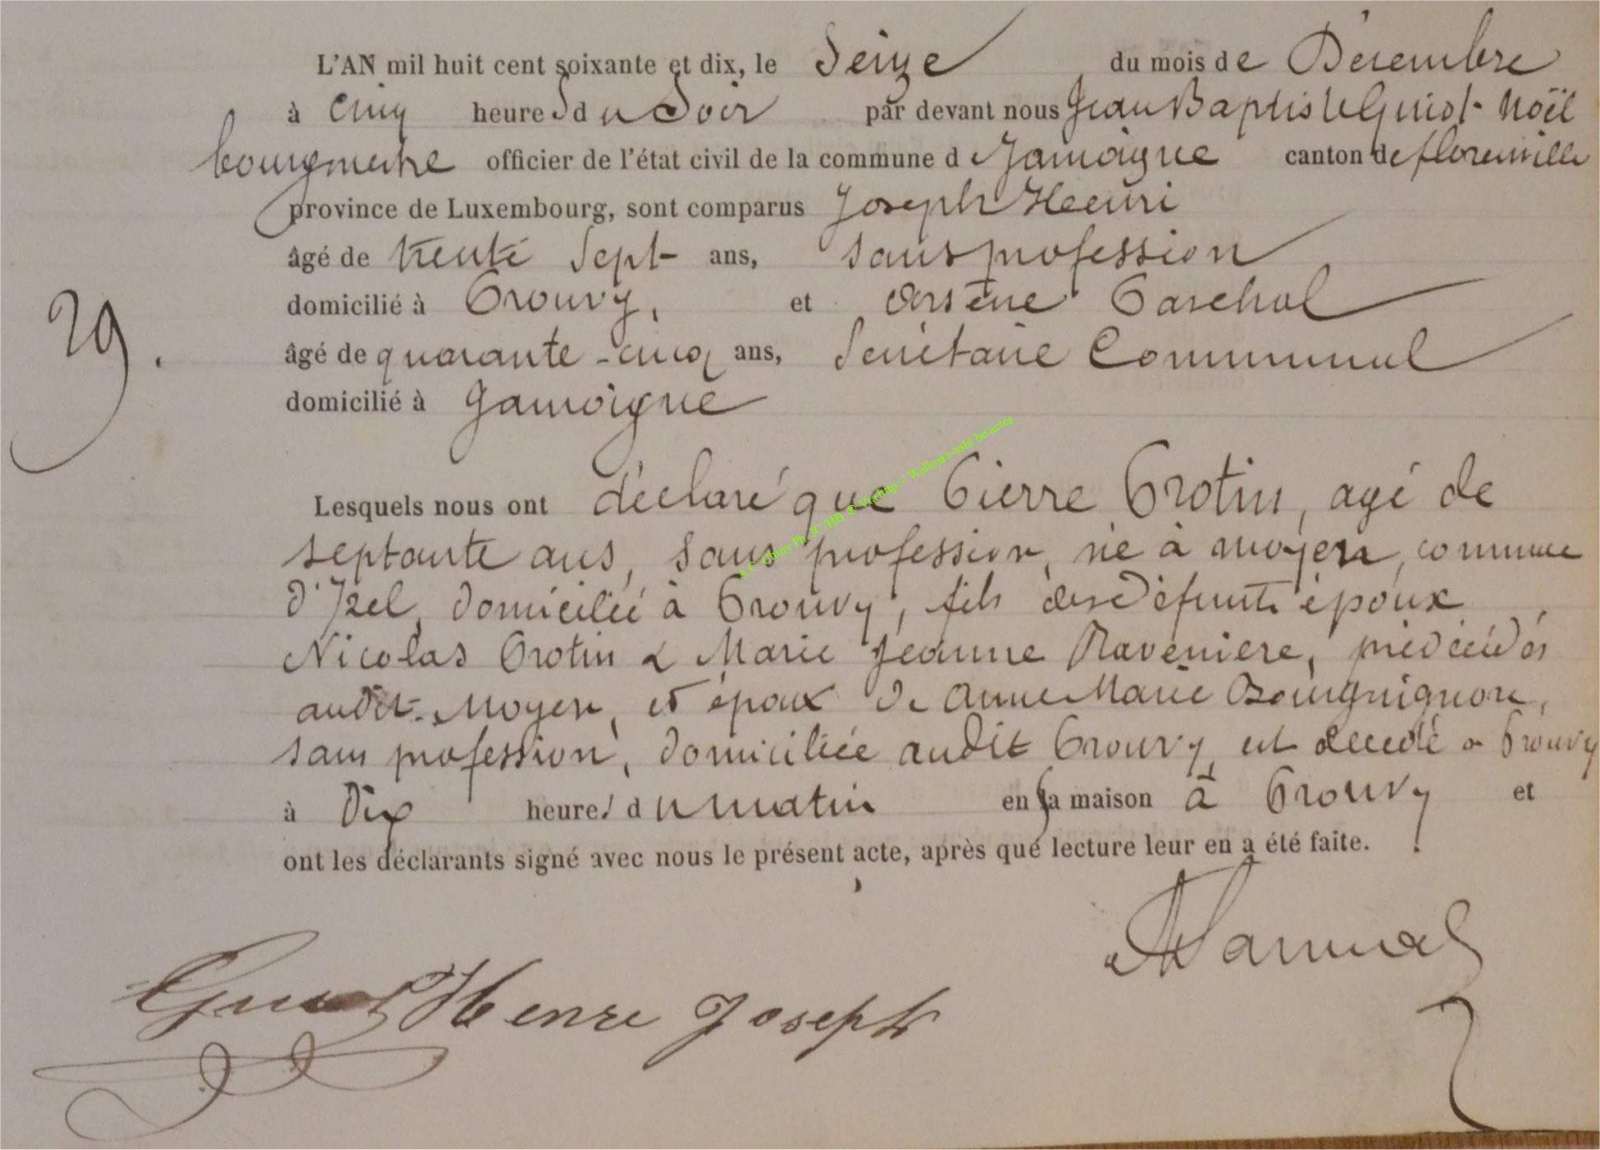 L'AN mil huit cent soixante et dix, le Seize du mois de Décembre
à Cinq heures du Soir par devant nous Jean Baptiste Guiot Noël
bourgmestre officier de l'état civil de la commune de Jamoigne canton de florenville
province de Luxembourg, sont comparus Joseph Henri
âgé de trente Sept ans, sans profession
domicilié à Prouvy, et Arsène
âgé de quarante-cinq ans, Secrétaire Communal
domicilié à Jamoigne
29.
Lesquels nous ont déclaré que Pierre Protin, agé de
septante ans, sans profession, né à moyen, commune
d'Izel, domiciliée à Prouvy, fils des défunts époux
Nicolas Protin & Marie Jeanne Raveniere, prédécédés
audit Moyen, et époux de Anne Marie Bourguignon,
sans profession, domiciliée audit Prouvy, est decedé a Prouvy
à Dix heures du matin en sa maison à Prouvy et
ont les déclarants signé avec nous le présent acte, après que lecture leur en a été faite.
Guiot Henri Joseph